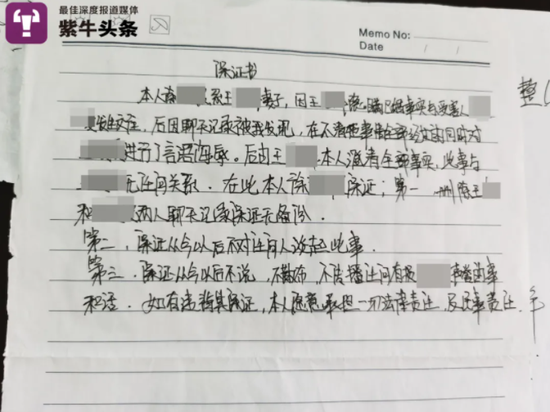 最佳深度报道媒体
紫牛头条
Memo No:
Date / /
保证书
本人 系王 妻子,因王 隐瞒已婚事实与受害人
交往,后因聊天记录被我发现,在不清楚事情全部经过前因后对
进行了言语侮辱。后由王 本人澄清全部事实,此事与
无任何关系。在此本人 保证:第一 删除王
和 两人聊天记录保证无备份。
第二,保证从今以后不对任何人谈起此事。
第三,保证从今以后不说,不散布,不传播任何有损 声誉的事
和话。如有违背其保证,本人愿意承担一切法律责任,及
整